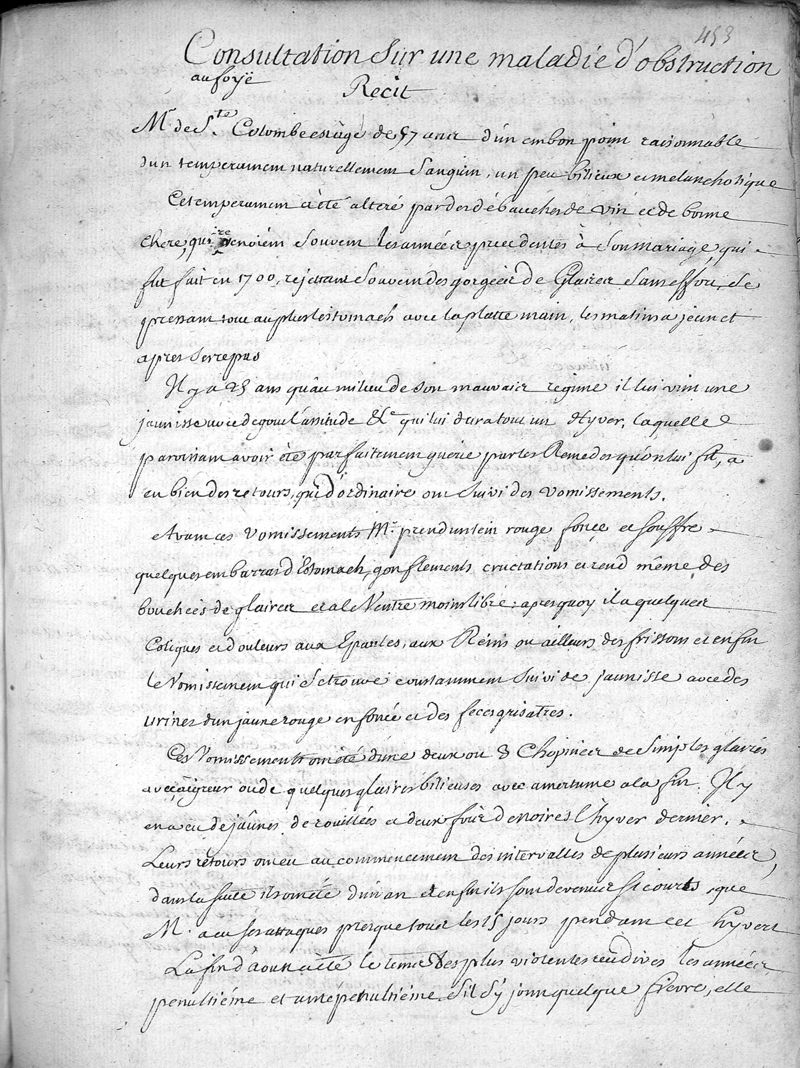 453
Consultation Sur une maladie d'obstruction
au foyë
Recit
Mr. de Ste. Colombe est agé de 57 ans d'un embonpoint raisonnable
d'un temperament naturellement Sanguin, un peu bilieux et melancholique
Ce temperament a été alteré par des débauches de vin et de bonne
chere, qui venoient Souvent les années precedentes à Son mariage, qui
fut fait en 1700, rejettant Souvent des gorgées de Glaires Sans effort, Se
pressant tout au plus l'estomach avec la platte main, les matins a jeun et
apres Ses repas
Il y a 25 ans qu'au milieu de Son mauvais regime il lui vint une
jaunisse avec degout lassitude &c qui lui dura tout un Hyver, laquelle
paroissant avoir été parfaitement guerie par les Remedes qu'on lui fit, a
eu bien des retours, qui d'ordinaire ont Suivi des vomissements.
Avant ces vomissements Mr. prend un tein rouge foncé et Souffre
quelques embarras d'Estomach, gonflements eructations et rend même des
bouchées de glaires et a le Ventre moins libre: apres quoy il a quelques
Coliques et douleurs aux Epaules, aux Reins ou ailleurs des frissons et enfin
le Vomissement qui Se trouve constamment Suivi de jaunisse avec des
urines d'un jaune rouge enfoncé et des feces grisatres.
Ces Vomissements ont été d'une deux ou 3 Chopines de Simples glaires
avec aigreur ou de quelques glaires bilieuses avec amertume a la fin. Il y
en a eu de jaûnes, de rouillées et deux fois de noires l'hyver dernier.
Leurs retours ont eu au commencement des intervalles de plusieurs années,
dans la suite ils ont été d'un an et enfin ils sont devenus Si courts, que
M. a eu Ses attaques presque tous les 15 jours pendant cet hyver
La fin d'aout a été le tems des plus violentes recidives les années
penultiéme et antepenultiéme. S'il S'y joint quelque fievre, elle